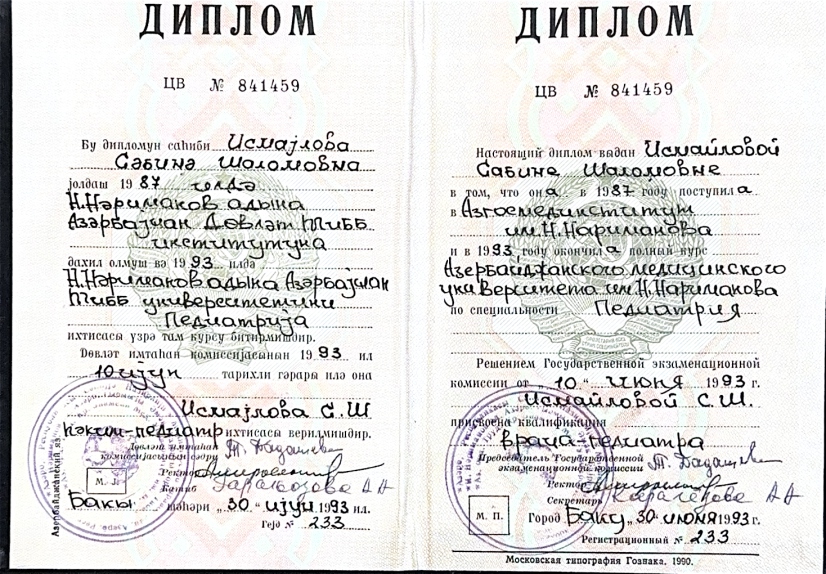 ДИПЛОМ
ЦВ № 841459
Бу дипломун саһиби Исмајлова
Сәбинә Шаломовна
јолдаш 1987 елдә
Н.Нәриманов адына
Азәрбајҹан Дөвләт Тибб
институтуна
дахил олмуш вә 1993 илдә
Н.Нәриманов адына Азәрбајҹан
Тибб университетини
Педиатрија
ихтисасы үзрә там курсу битирмишдир.
Дөвләт имтаһан комиссијасынын 1993 ил
10 ијун тарихли гәрары илә она
Исмајлова С.Ш.
һәким-педиатр ихтисасы верилмишдир.
Дөвләт имтаһан
комиссијасынын сәдри
Ректор
Катиб
М. Ј.
Бакы шәһәри „30“ ијун 1993 ил.
Гејд № 233
Азербайджанский яз.
ДИПЛОМ
ЦВ № 841459
Настоящий диплом выдан Исмайловой
Сабине Шаломовне
в том, что она в 1987 году поступила
в Азгосмединститут
им.Н.Нариманова
и в 1993 году окончила полный курс
Азербайджанского медицинского
университета им.Н.Нариманова
по специальности Педиатрия
Решением Государственной экзаменационной
комиссии от „10“ июня 1993 г.
Исмайловой С.Ш.
присвоена квалификация
врача-педиатра
Председатель Государственной
экзаменационной комиссии
Ректор
Секретарь
М. П.
Город Баку „30“ июня 1993 г.
Регистрационный № 233
Московская типография Гознака. 1990.